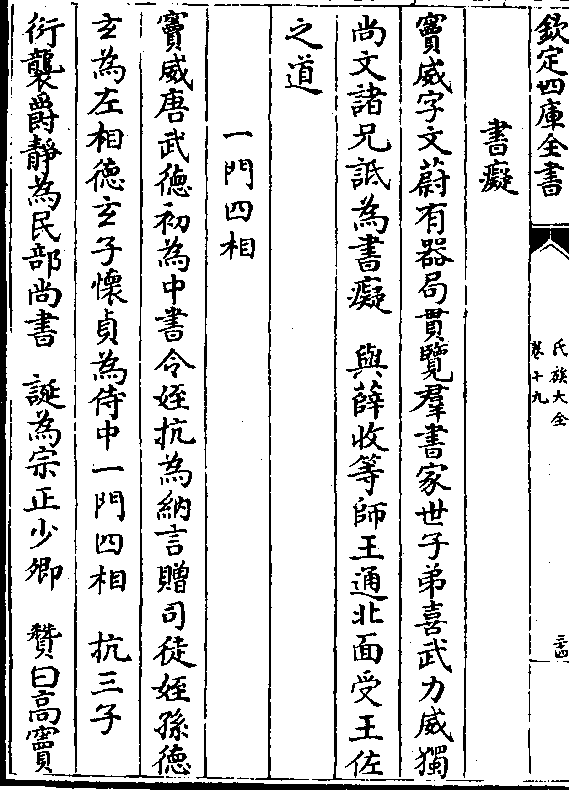 欽定四庫全書
氏族大全
卷十九
三四
書癡
竇威字文蔚有器局貫覽羣書家世子弟喜武力威獨
尚文諸兄詆為書癡　與薛收等師王通北面受王佐
之道
一門四相
竇威唐武徳初為中書令姪抗為納言贈司徒姪孫德
玄為左相德玄子懷貞為侍中一門四相　抗三子
衍襲爵靜為民部尚書　誕為宗正少卿　贊曰高竇